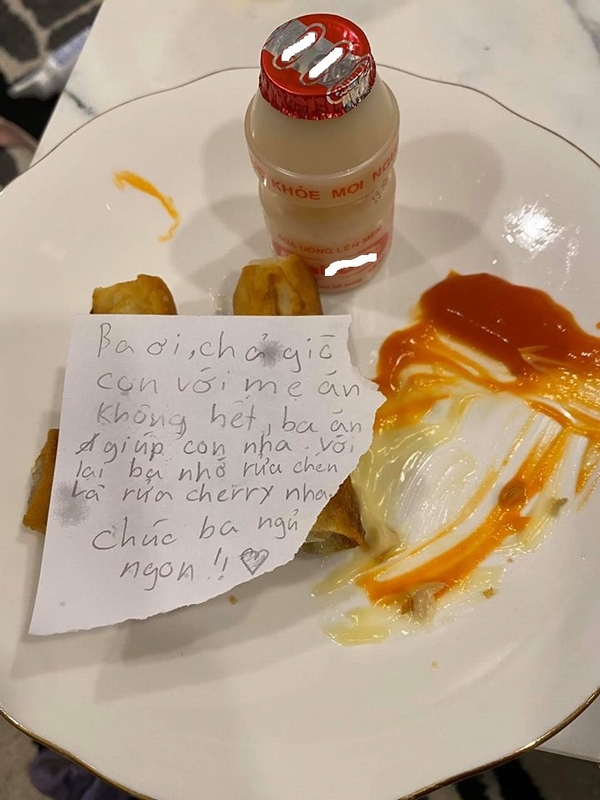 KHỎE MỌI
SỮA UỐNG LÊN MEN
Ba ơi, chả giò
con với mẹ ăn
không hết, ba ăn
giúp con nha. Với
lại ba nhớ rửa chén
và rửa cherry nha.
chúc ba ngủ
ngon !! ♡